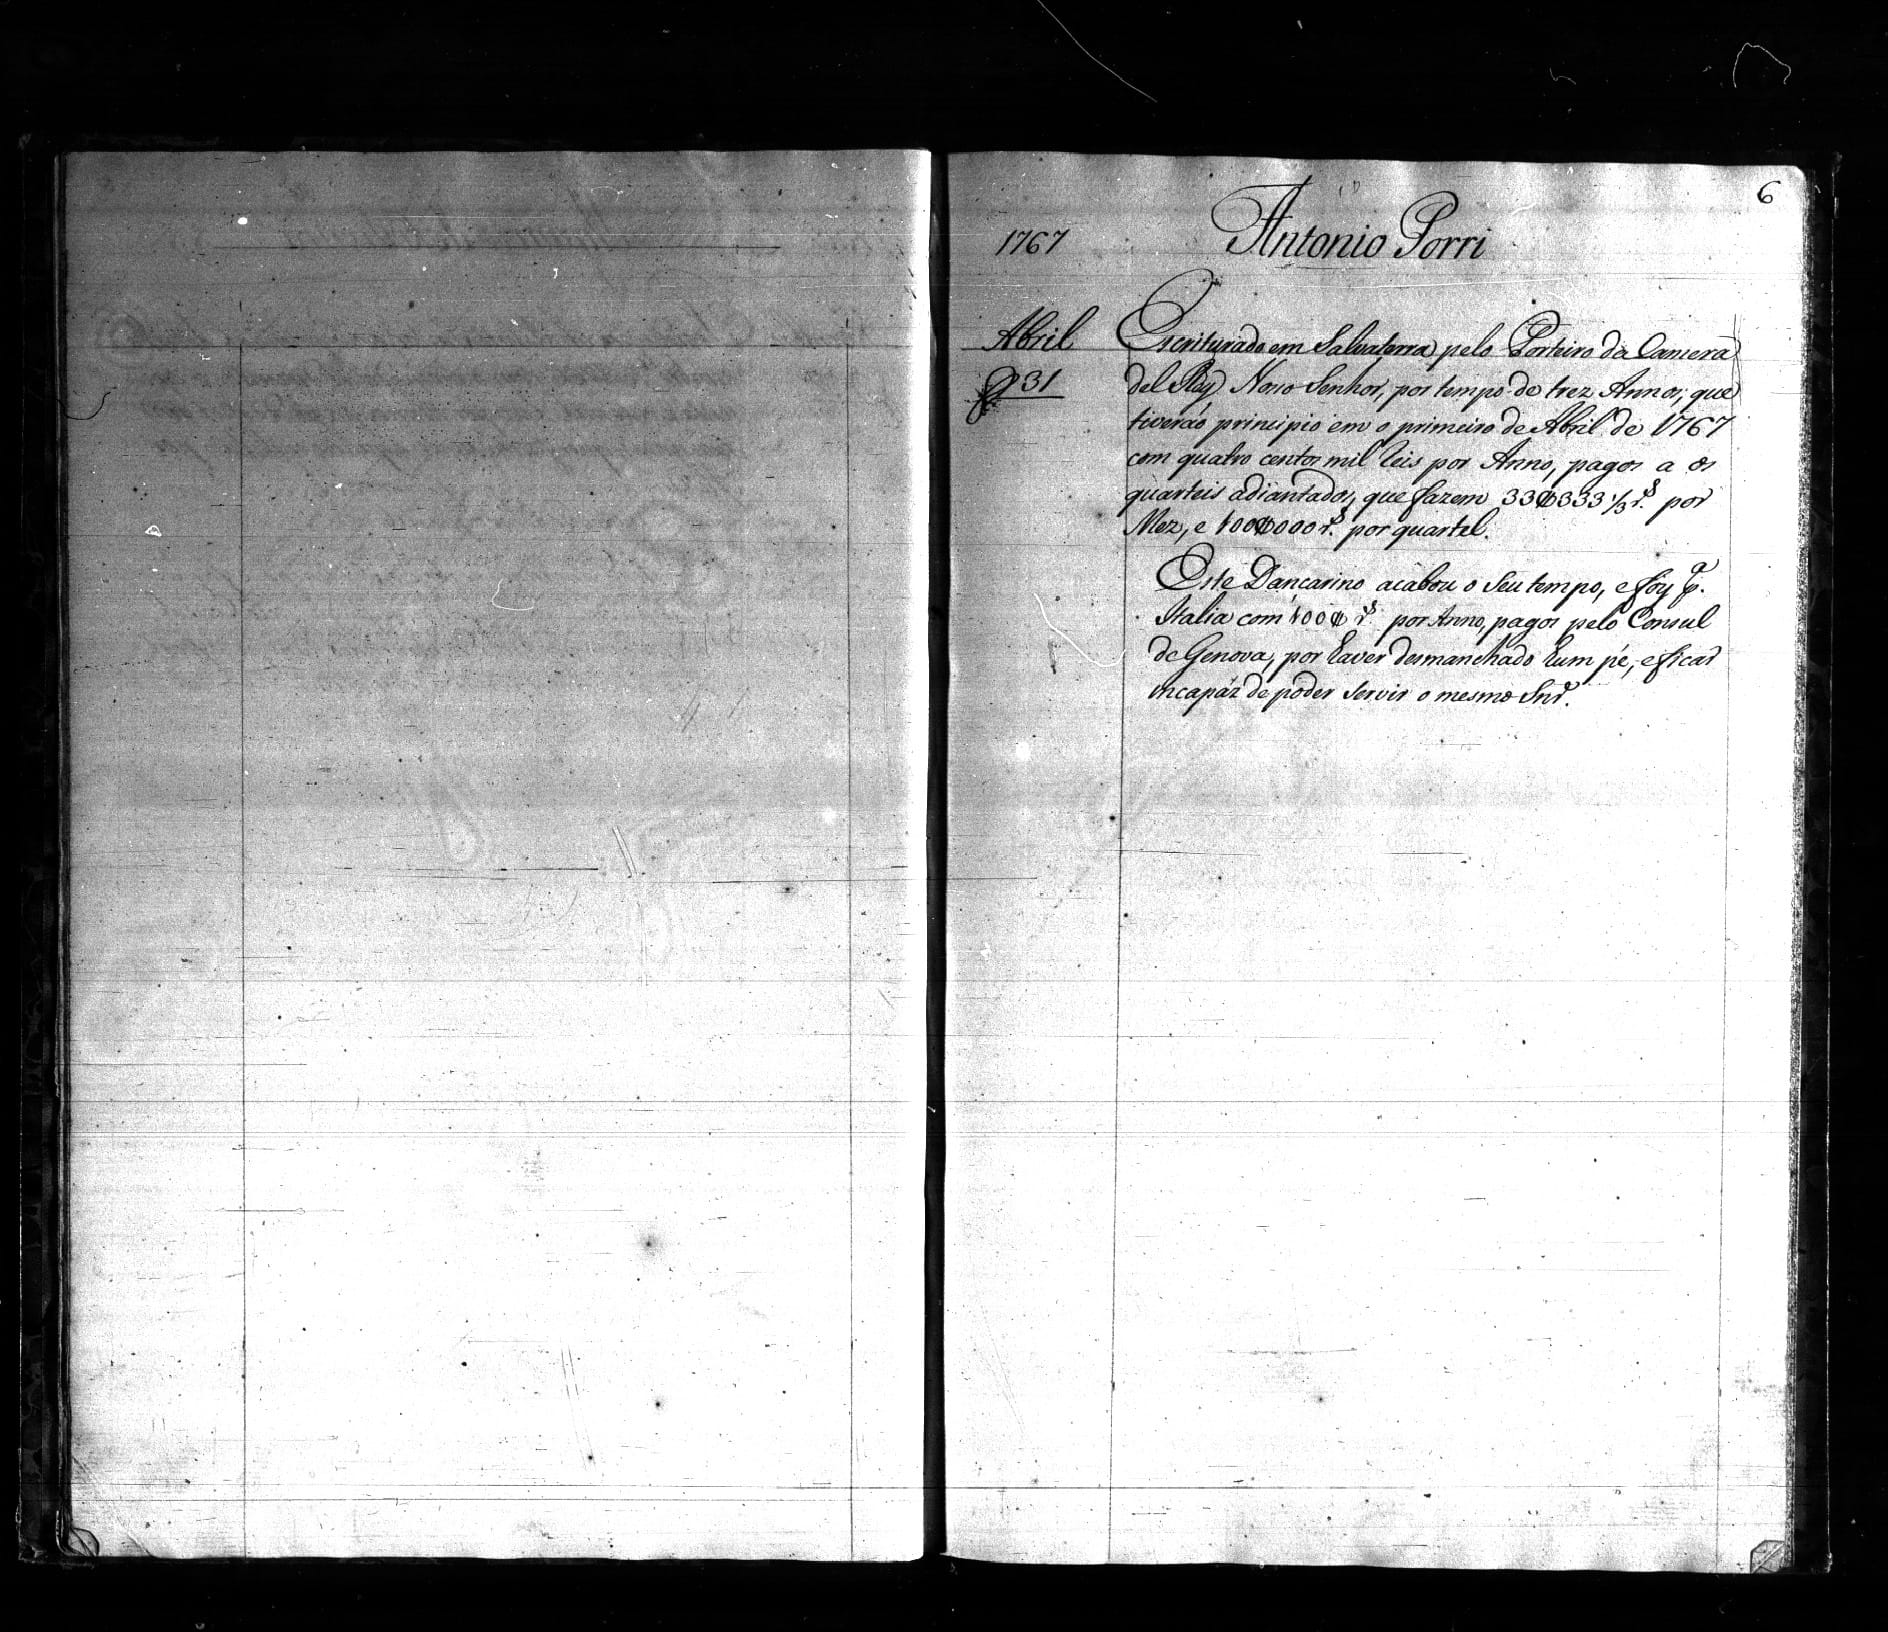 6
1767 Antonio Porri
Abril
31
Escriturado em Salvaterra pelo Porteiro da Camera
del Rey Noso Senhor, por tempo de trez Annos, que
tiveraõ principio em o primeiro de Abril de 1767
com quatro centos mil reis por Anno, pagos a os
quarteis adiantados, que fazem 33$333 1/3 rs. por
Mez, e 100$000 rs. por quartel.
Este Dancarino acabou o Seu tempo, e foy pa.
Italia com 100$ rs. por Anno, pagos pelo Consul
de Genova, por haver desmanchado hum pé, e ficar
incapáz de poder servir o mesmo Snr.